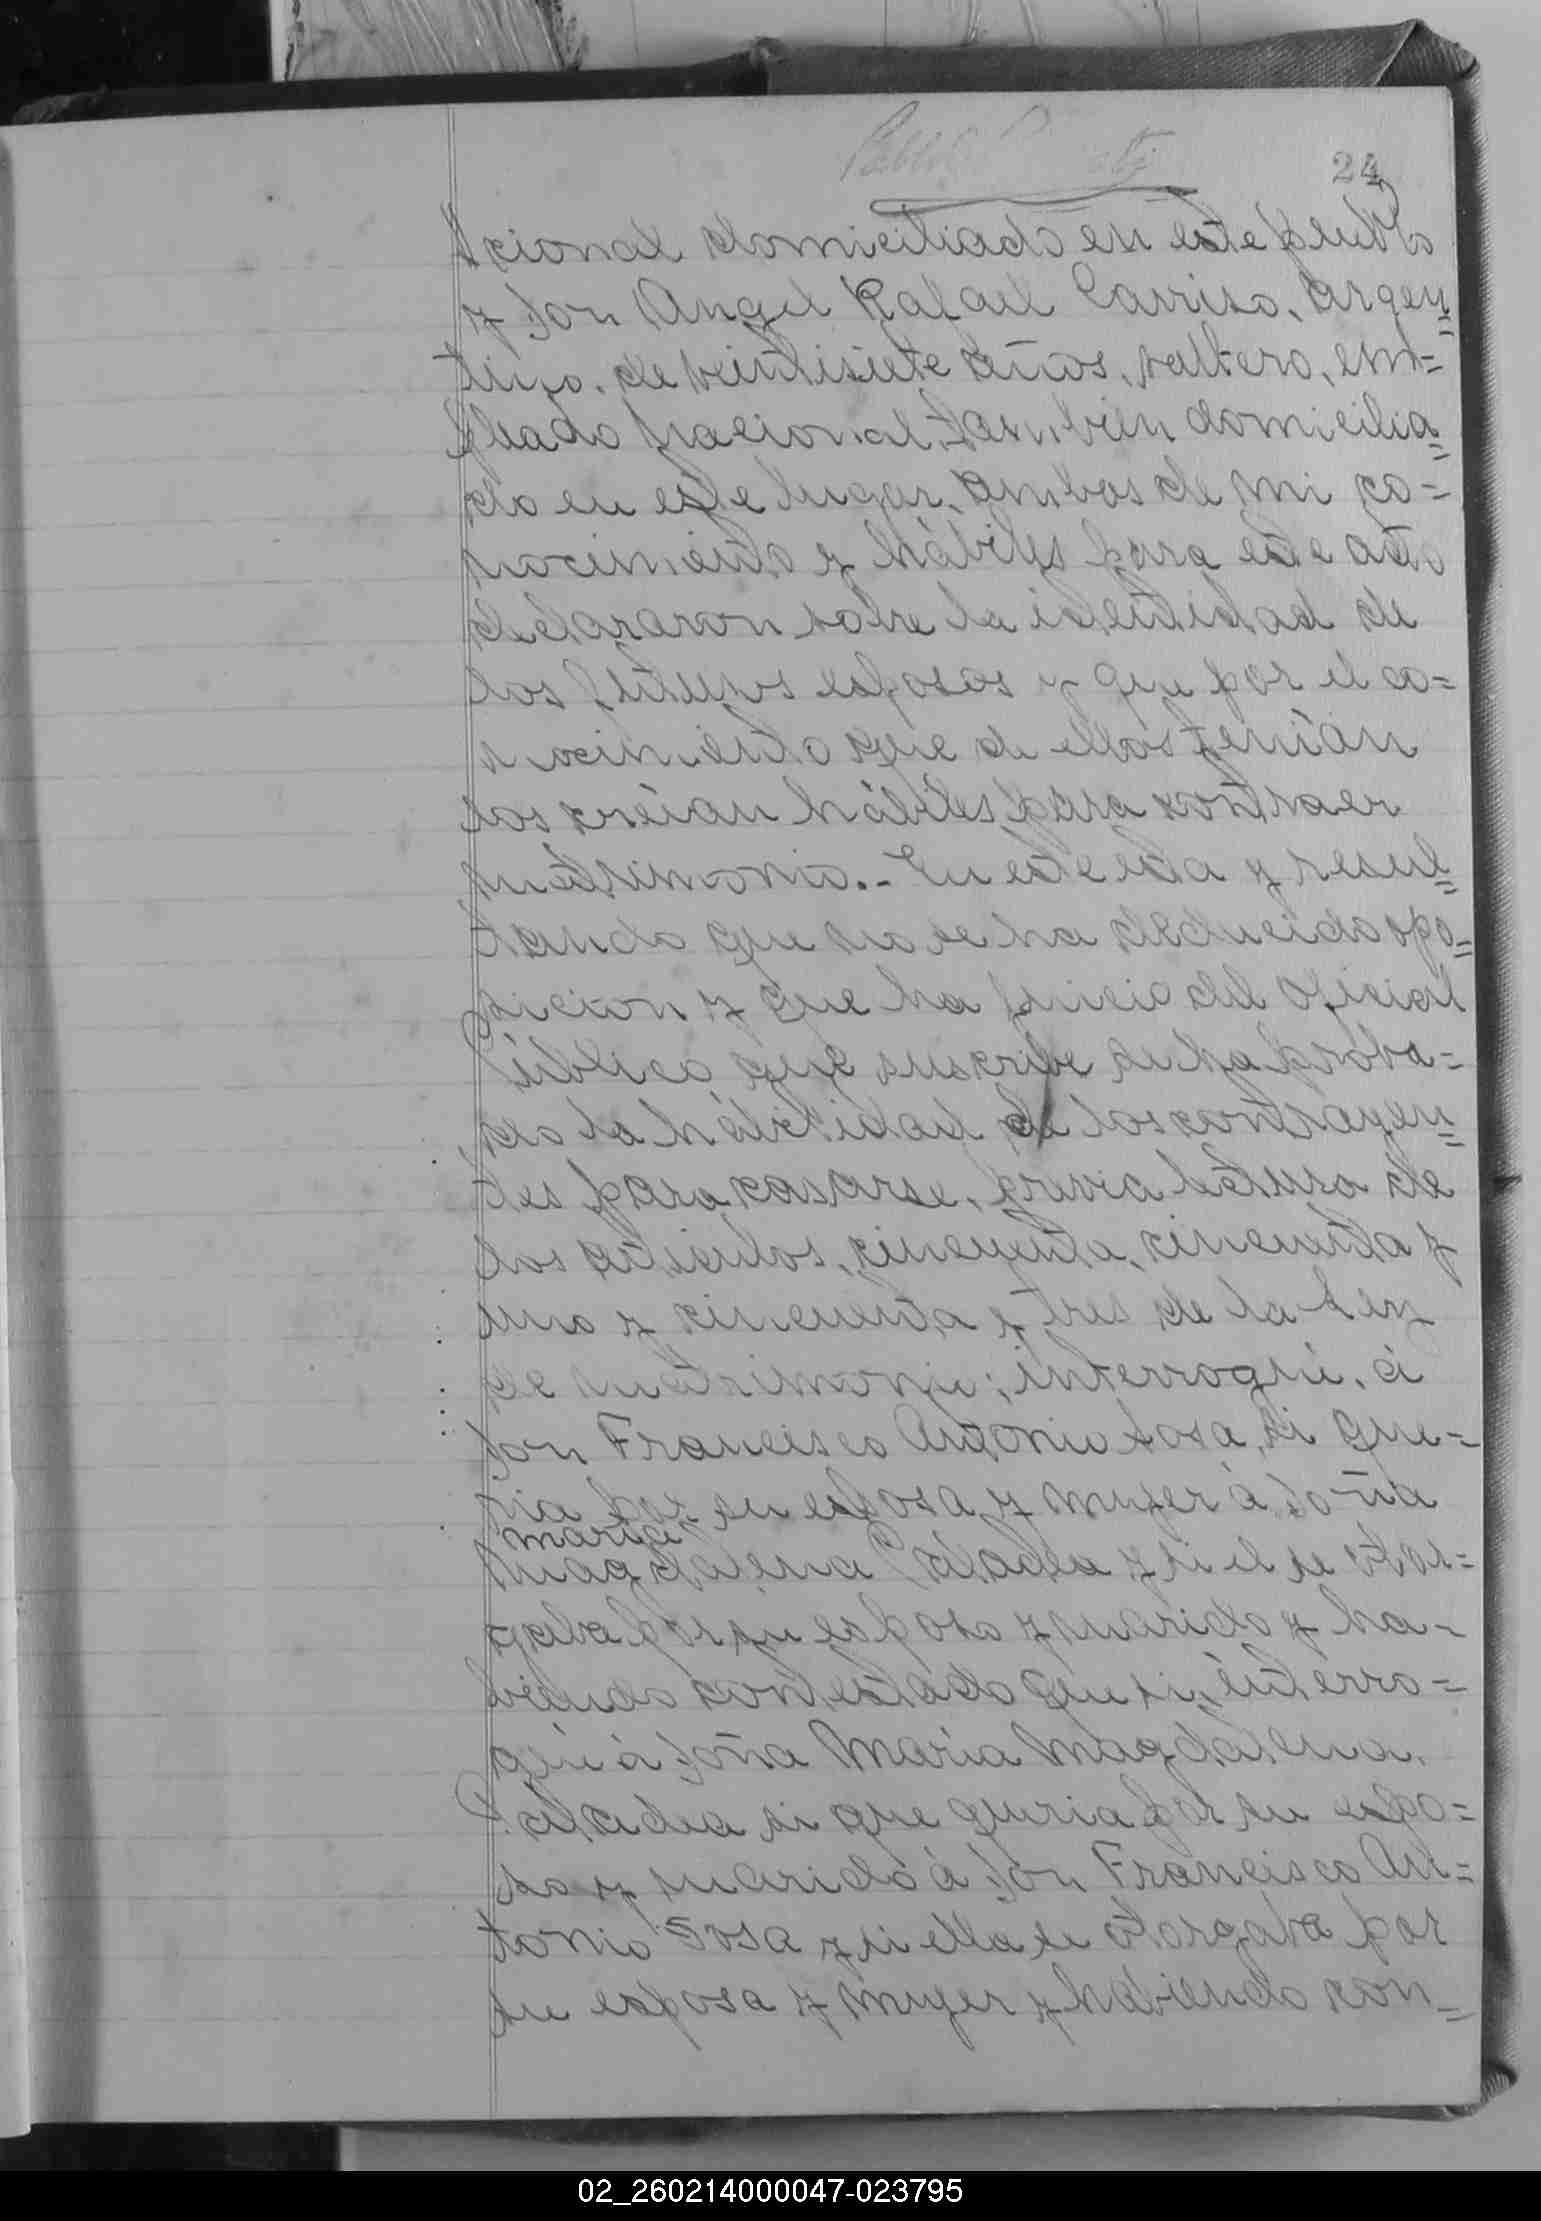 24
cional domiciliado en este pueblo
y Don Angel Rafael Carriso, argen=
tino, de veintisiete años, soltero, em=
pleado nacional, tambien domicilia=
do en este lugar, ambos de mi co=
nocimiento y hábiles para este acto
declararon sobre la identidad de
los futuros esposos y que por el co=
nocimiento que de ellos tenían
los creían hábiles para contraer
matrimonio.- En este esta y resul=
tando que no se ha deducido opo=
sicion y que ha juicio del Oficial
Público que suscribe se ha proba=
do la habilidad de los contrayen=
tes para casarse, previa lectura de
los articulos, cincuenta, cincuenta y
uno y cincuenta y tres de la Ley
de matrimonio; interrogué, á
Don Francisco Antonio Sosa, si que=
ria por su esposa y mujer á Doña
maria
Magdalena y si el se otor=
gaba por su esposo y marido y ha=
biendo contestado que si, interro=
gué á Doña María Magdalena,
si que queria por su espo=
so y marido á Don Francisco An=
tonio Sosa y si ella se otorgaba por
su esposa y mujer y habiendo con=
02_260214000047-023795